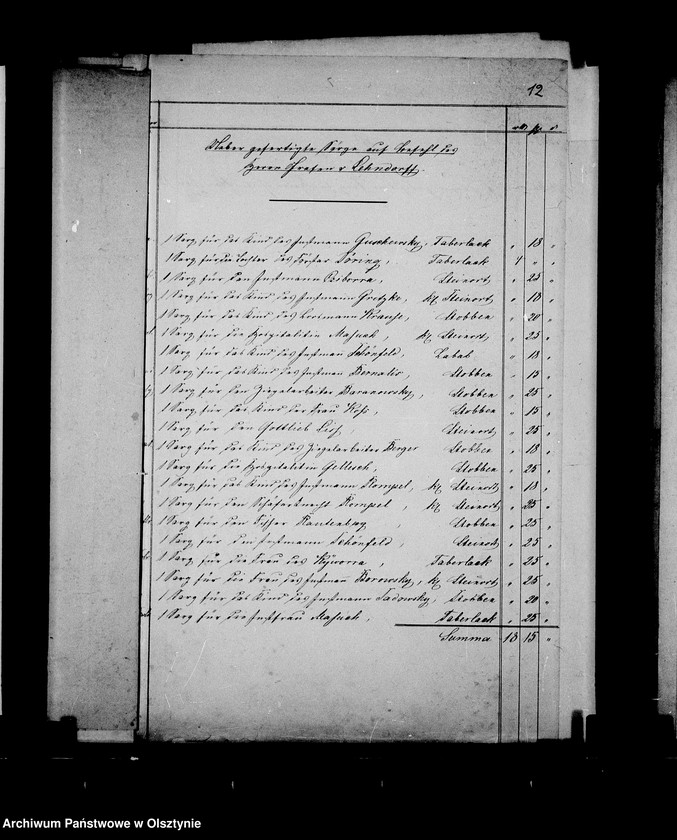 12
Ueber gefertigte Särge auf Befehl des
Herrn Grafen v Lehndorff.
1 Sarg für das Kind des Instmann Guschewsky, Taberlack " 18 "
1 Sarg für die Tochter des Förster Döring, Taberlack 4 " "
1 Sarg für den Instmann Steinort " 25 "
1 Sarg für das Kind des Instmann Kl Steinort " 18 "
1 Sarg für das Kind des Krause, Stobben " 20 "
1 Sarg für die Hospitalitin Masuch, Kl Steinort " 25 "
1 Sarg für das Kind des Instman Schönfeld, Labab " 18 "
1 Sarg für das Kind des Instman Stobben " 15 "
1 Sarg für den Ziegelarbeiter Baranowsky, Stobben " 25 "
1 Sarg für das Kind der Frau Stobben " 15 "
1 Sarg für den Gottlieb Steinort " 25 "
1 Sarg für das Kind des Ziegelarbeiter Berger Stobben " 18 "
1 Sarg für die Hospitalitin Stobben " 25 "
1 Sarg für das Kind des Instmann Rompel, Kl Steinort " 18 "
1 Sarg für den Schäferknecht Rompel, Kl Steinort " 25 "
1 Sarg für den Fischer Rautenberg, Stobben " 25 "
1 Sarg für den Instmann Schönfeld, Steinort " 25 "
1 Sarg für die Frau des Taberlack " 25 "
1 Sarg für die Frau des Instman Borowsky, Kl Steinort " 25 "
1 Sarg für das Kind des Instmann Sadowsky, Stobben " 20 "
1 Sarg für die Instfrau Masuch, Taberlack " 25 "
Summa 18 15 "
Archiwum Państwowe w Olsztynie